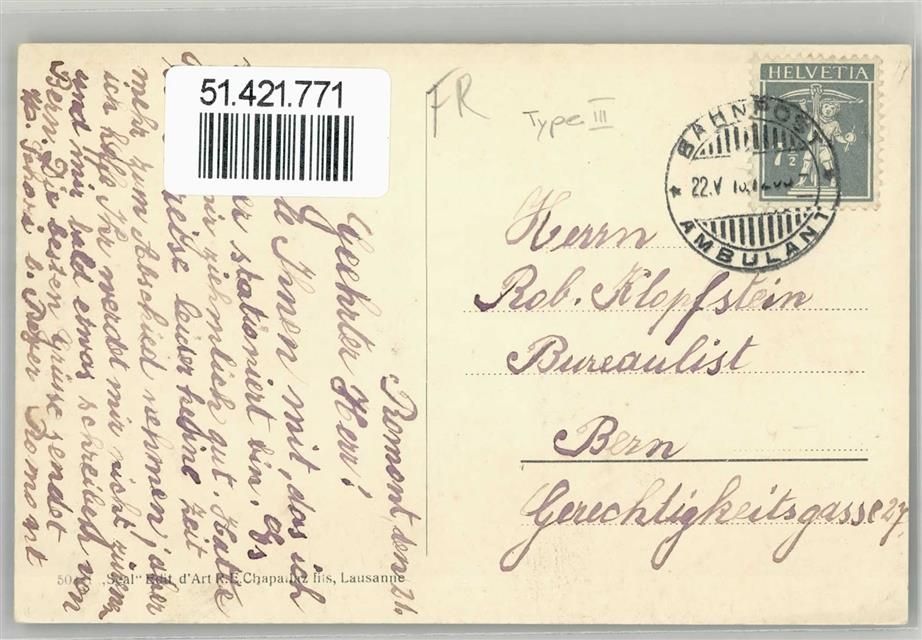 51.421.771
FR
Type III
HELVETIA
7 1/2
BAHNPOST
22.V
AMBULANT
Herrn
Rob. Klopfstein
Bureaulist
Bern
Gerechtigkeitsgasse 27
Romont, den 21.
Geehrter Herr!
Ihnen mit, das ich
stationiert bin. Es
mir ziehmlich gut. Hatte
leider keine Zeit
mehr zum Abschied nehmen, aber
ich hoffe Ihr werdet mir nicht zürnen
und mir bald etwas schreiben von
Bern. Die besten Grüsse sendet
Romont
"Seal" Edit. d'Art R.E. Chapallaz fils, Lausanne